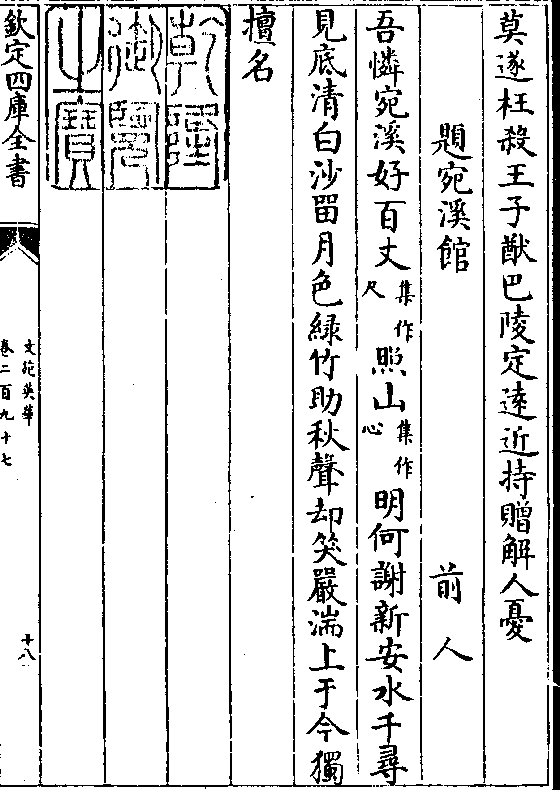 莫遂枉殺王子猷巴陵定逺近持贈解人憂
題宛溪館
前人
吾憐宛溪好百丈集作尺照山集作心明何謝新安水千尋
見底清白沙留月色緑竹助秋聲却笑嚴湍上于今獨
擅名
乾隆御覽之寶
欽定四庫全書
文苑英華
卷二百九十七
十八